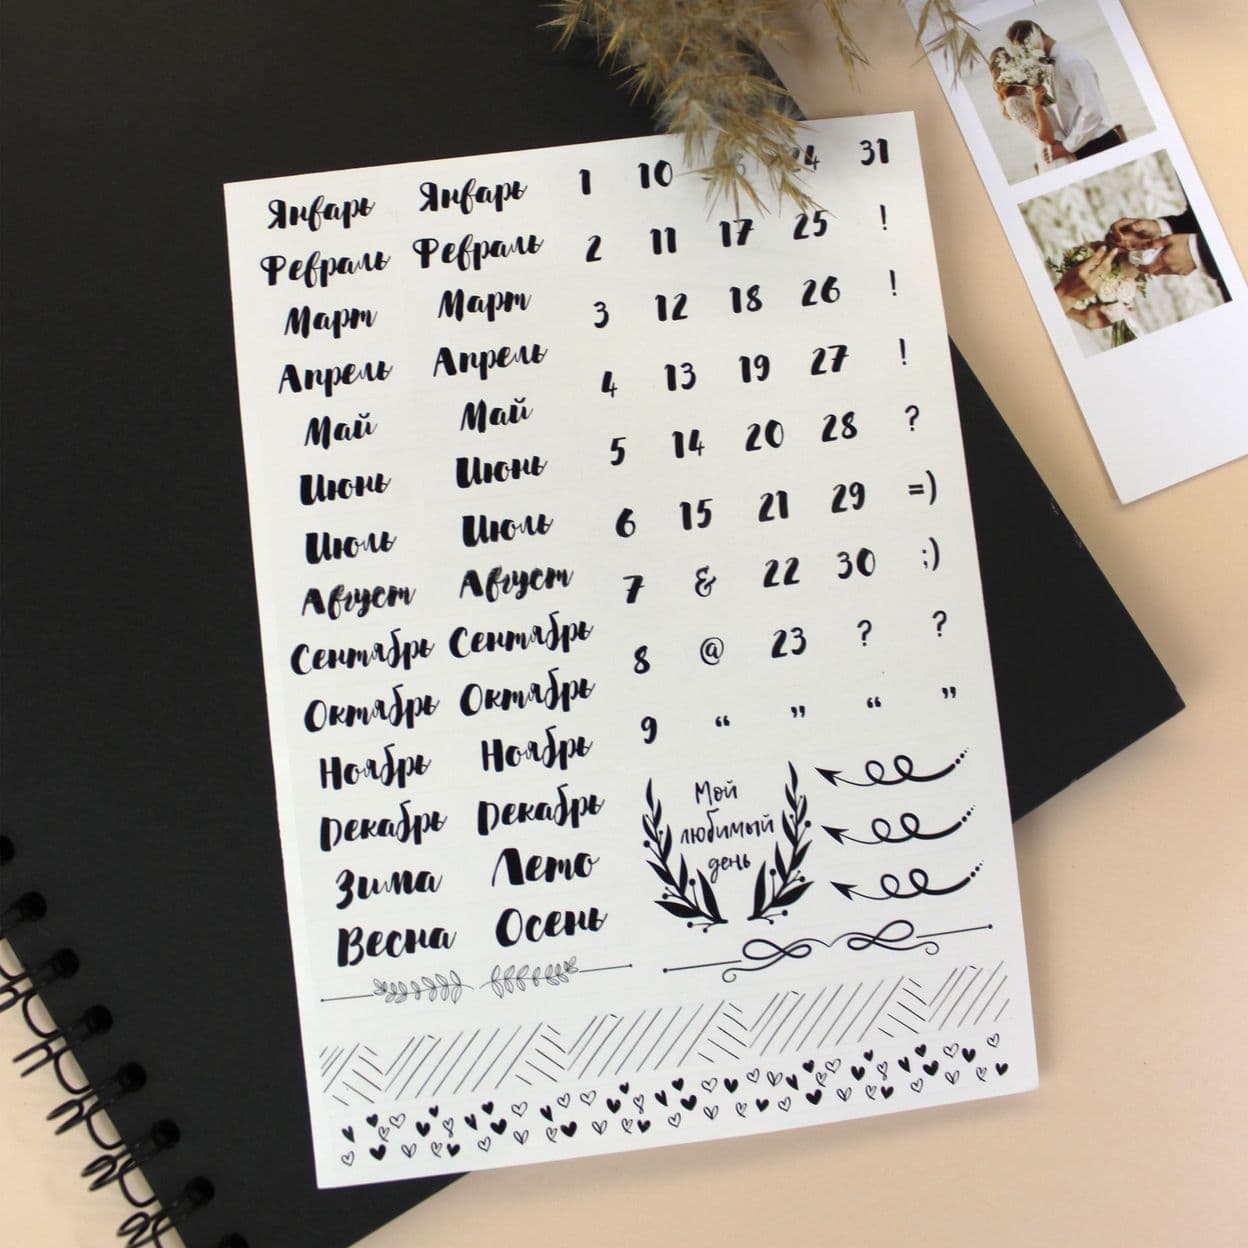 Январь Январь
Февраль Февраль
Март Март
Апрель Апрель
Май Май
Июнь Июнь
Июль Июль
Август Август
Сентябрь Сентябрь
Октябрь Октябрь
Ноябрь Ноябрь
Декабрь Декабрь
Зима Лето
Весна Осень
1 10 24 31
2 11 17 25 !
3 12 18 26 !
4 13 19 27 !
5 14 20 28 ?
6 15 21 29 =)
7 & 22 30 ;)
8 @ 23 ? ?
9 “ ” “ ”
Мой
любимый
день